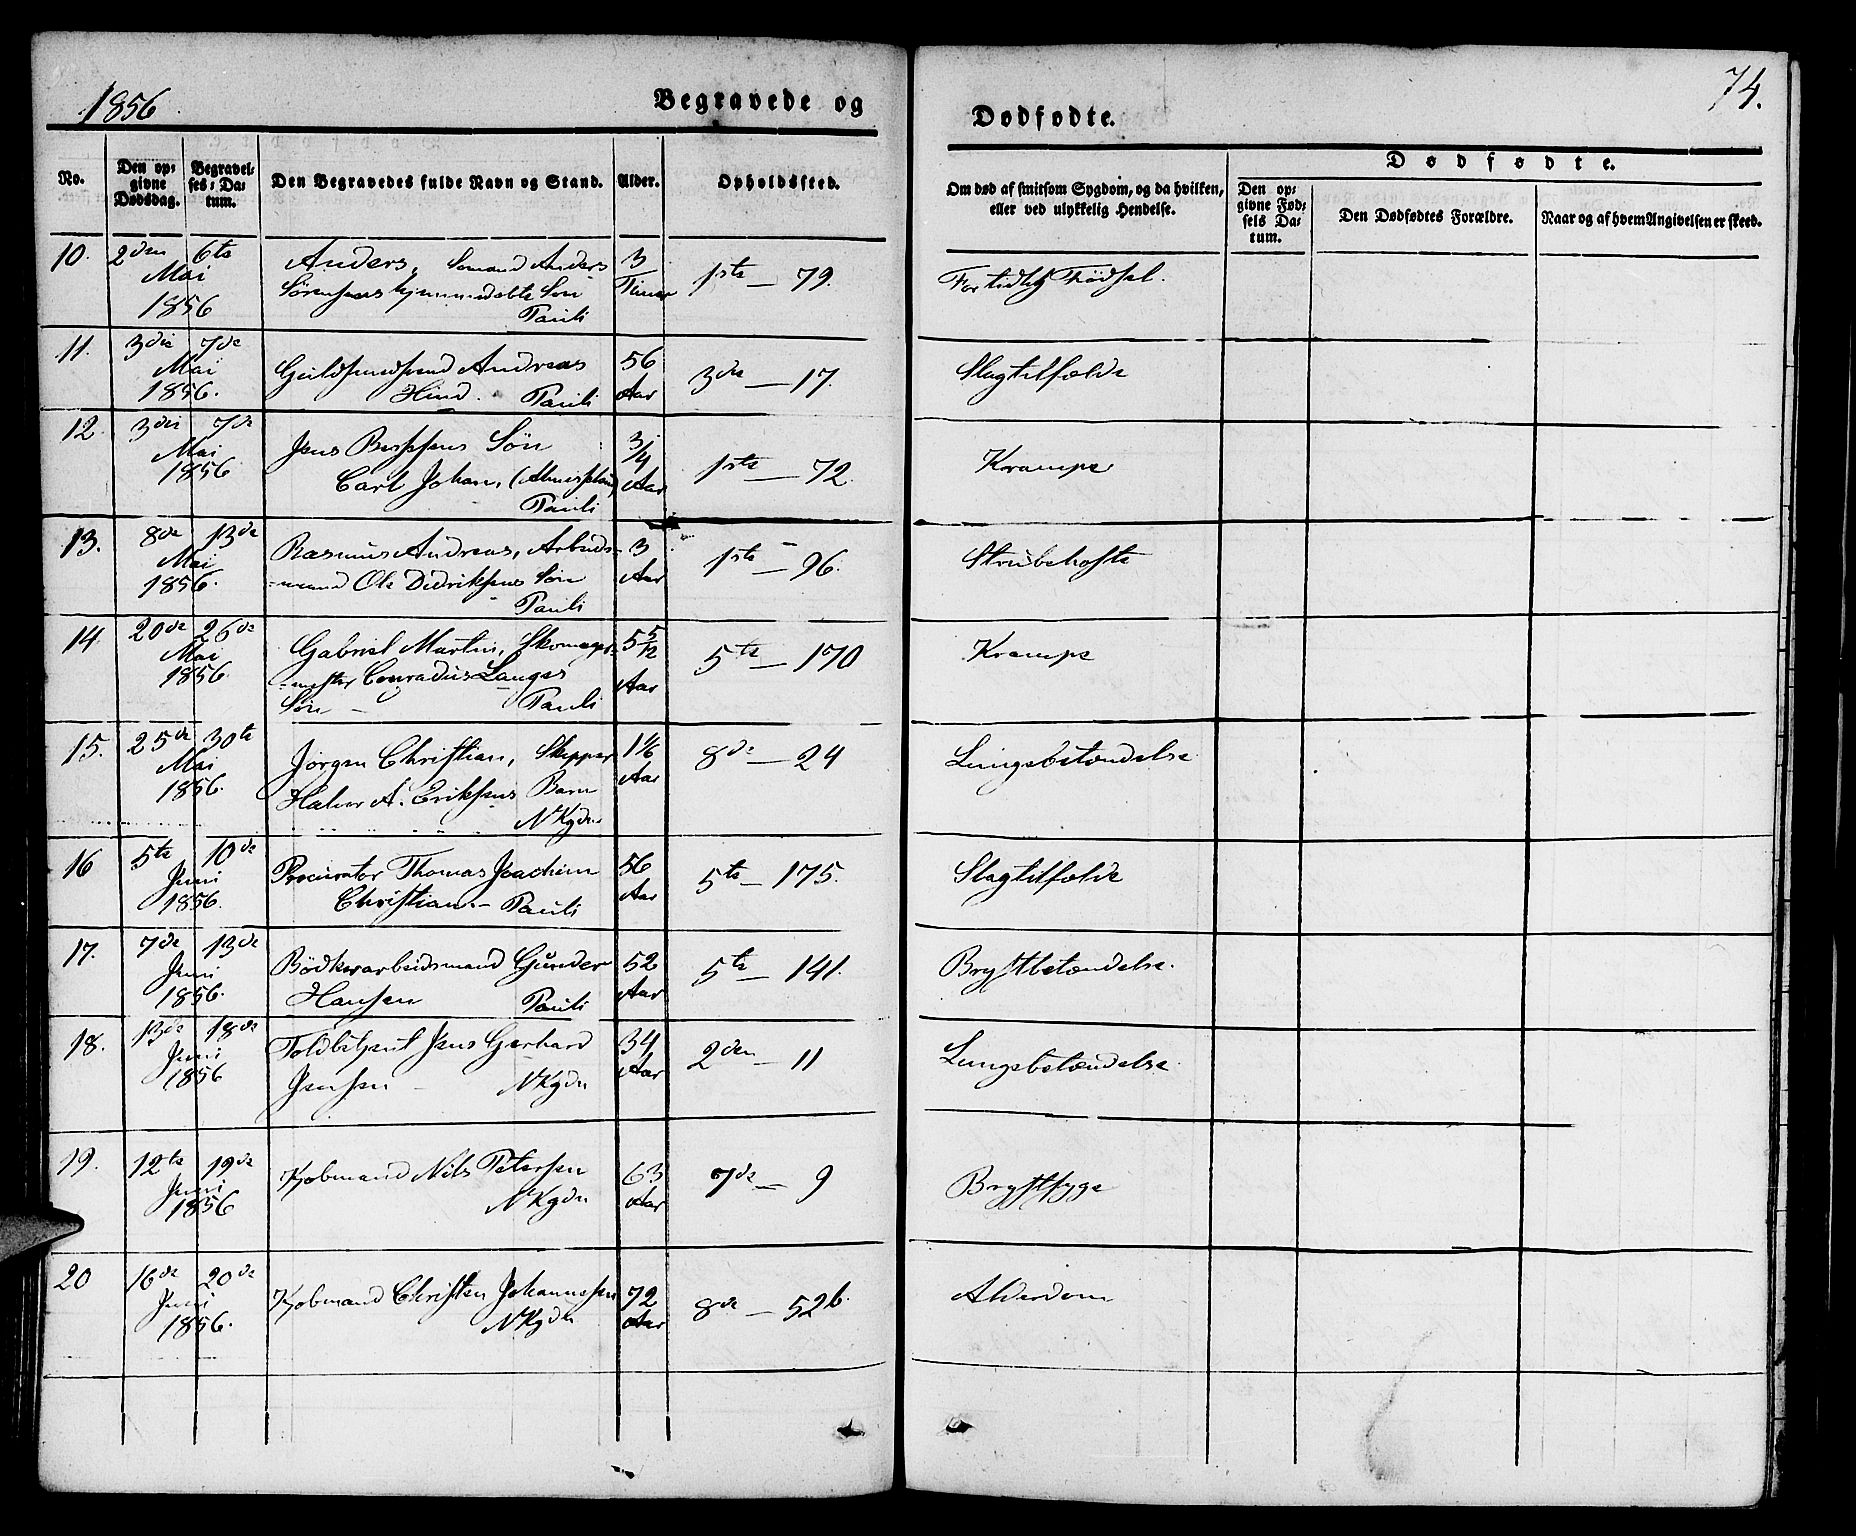 1856
Begravede og
Dødfødte.
74.
No.
Den opgivne Dødsdag.
Begravelses-Datum.
Den Begravedes fulde Navn og Stand.
Alder.
Opholdssted.
Om død af smitsom Sygdom, og da hvilken, eller ved ulykkelig Hendelse.
Dødfødte.
Den opgivne Fødsels Datum.
Den Dødfødtes Forældre.
Naar og af hvem Angivelsen er skeed.
10. 2den 6te Anders, Sømand Anders 3 1ste — 79. For tidlig Fødsel.
Mai Sørensens hjemmedøbte Søn Timer
1856 Pauli
11. 3die 7de Guldsmedsvend Andreas 56 3die — 17. Slagtilfælde
Mai Hind. Pauli Aar
1856.
12. 3die 7de Jens Søn 3/4 1ste — 72. Krampe
Mai Carl Johan, Aar
1856 Pauli
13. 8de 13de Rasmus Andreas, Arbeids- 3 1ste — 96. Strubehoste
Mai -mand Ole Didriksens Søn Aar
1856. Pauli
14. 20de 26de Gabriel Martin, Skomager- 5 5/12 5te — 170 Krampe
Mai -mester Conradus Langes Aar
1856. Søn — Pauli
15. 25de 30te Jørgen Christian, Skipper 1 1/6 8de — 24 Lungebetændelse
Mai Halvor A. Eriksens Barn Aar
1856. NKgdn
16 5te 10de Procurator Thomas Joachim 56 5te — 175. Slagtilfælde
Juni Christian. — Pauli Aar
1856.
17. 7de 13de Bödkerarbeidsmand Gunder 52 5te — 141. Brystbetændelse.
Juni Hansen Pauli Aar
1856.
18. 13de 18de Toldbetjent Jens Gerhard 34 2den — 11 Lungebetændelse.
Juni Jensen — NKgdn Aar
1856
19. 12te 19de Kjøbmand Nils Petersen 63 7de — 9 Brystsyge
Juni NKgdn Aar
1856
20 16de 20de Kjøbmand Christen Johannessen 72 8de — 52b. Alderdom
Juni NKgdn Aar
1856.